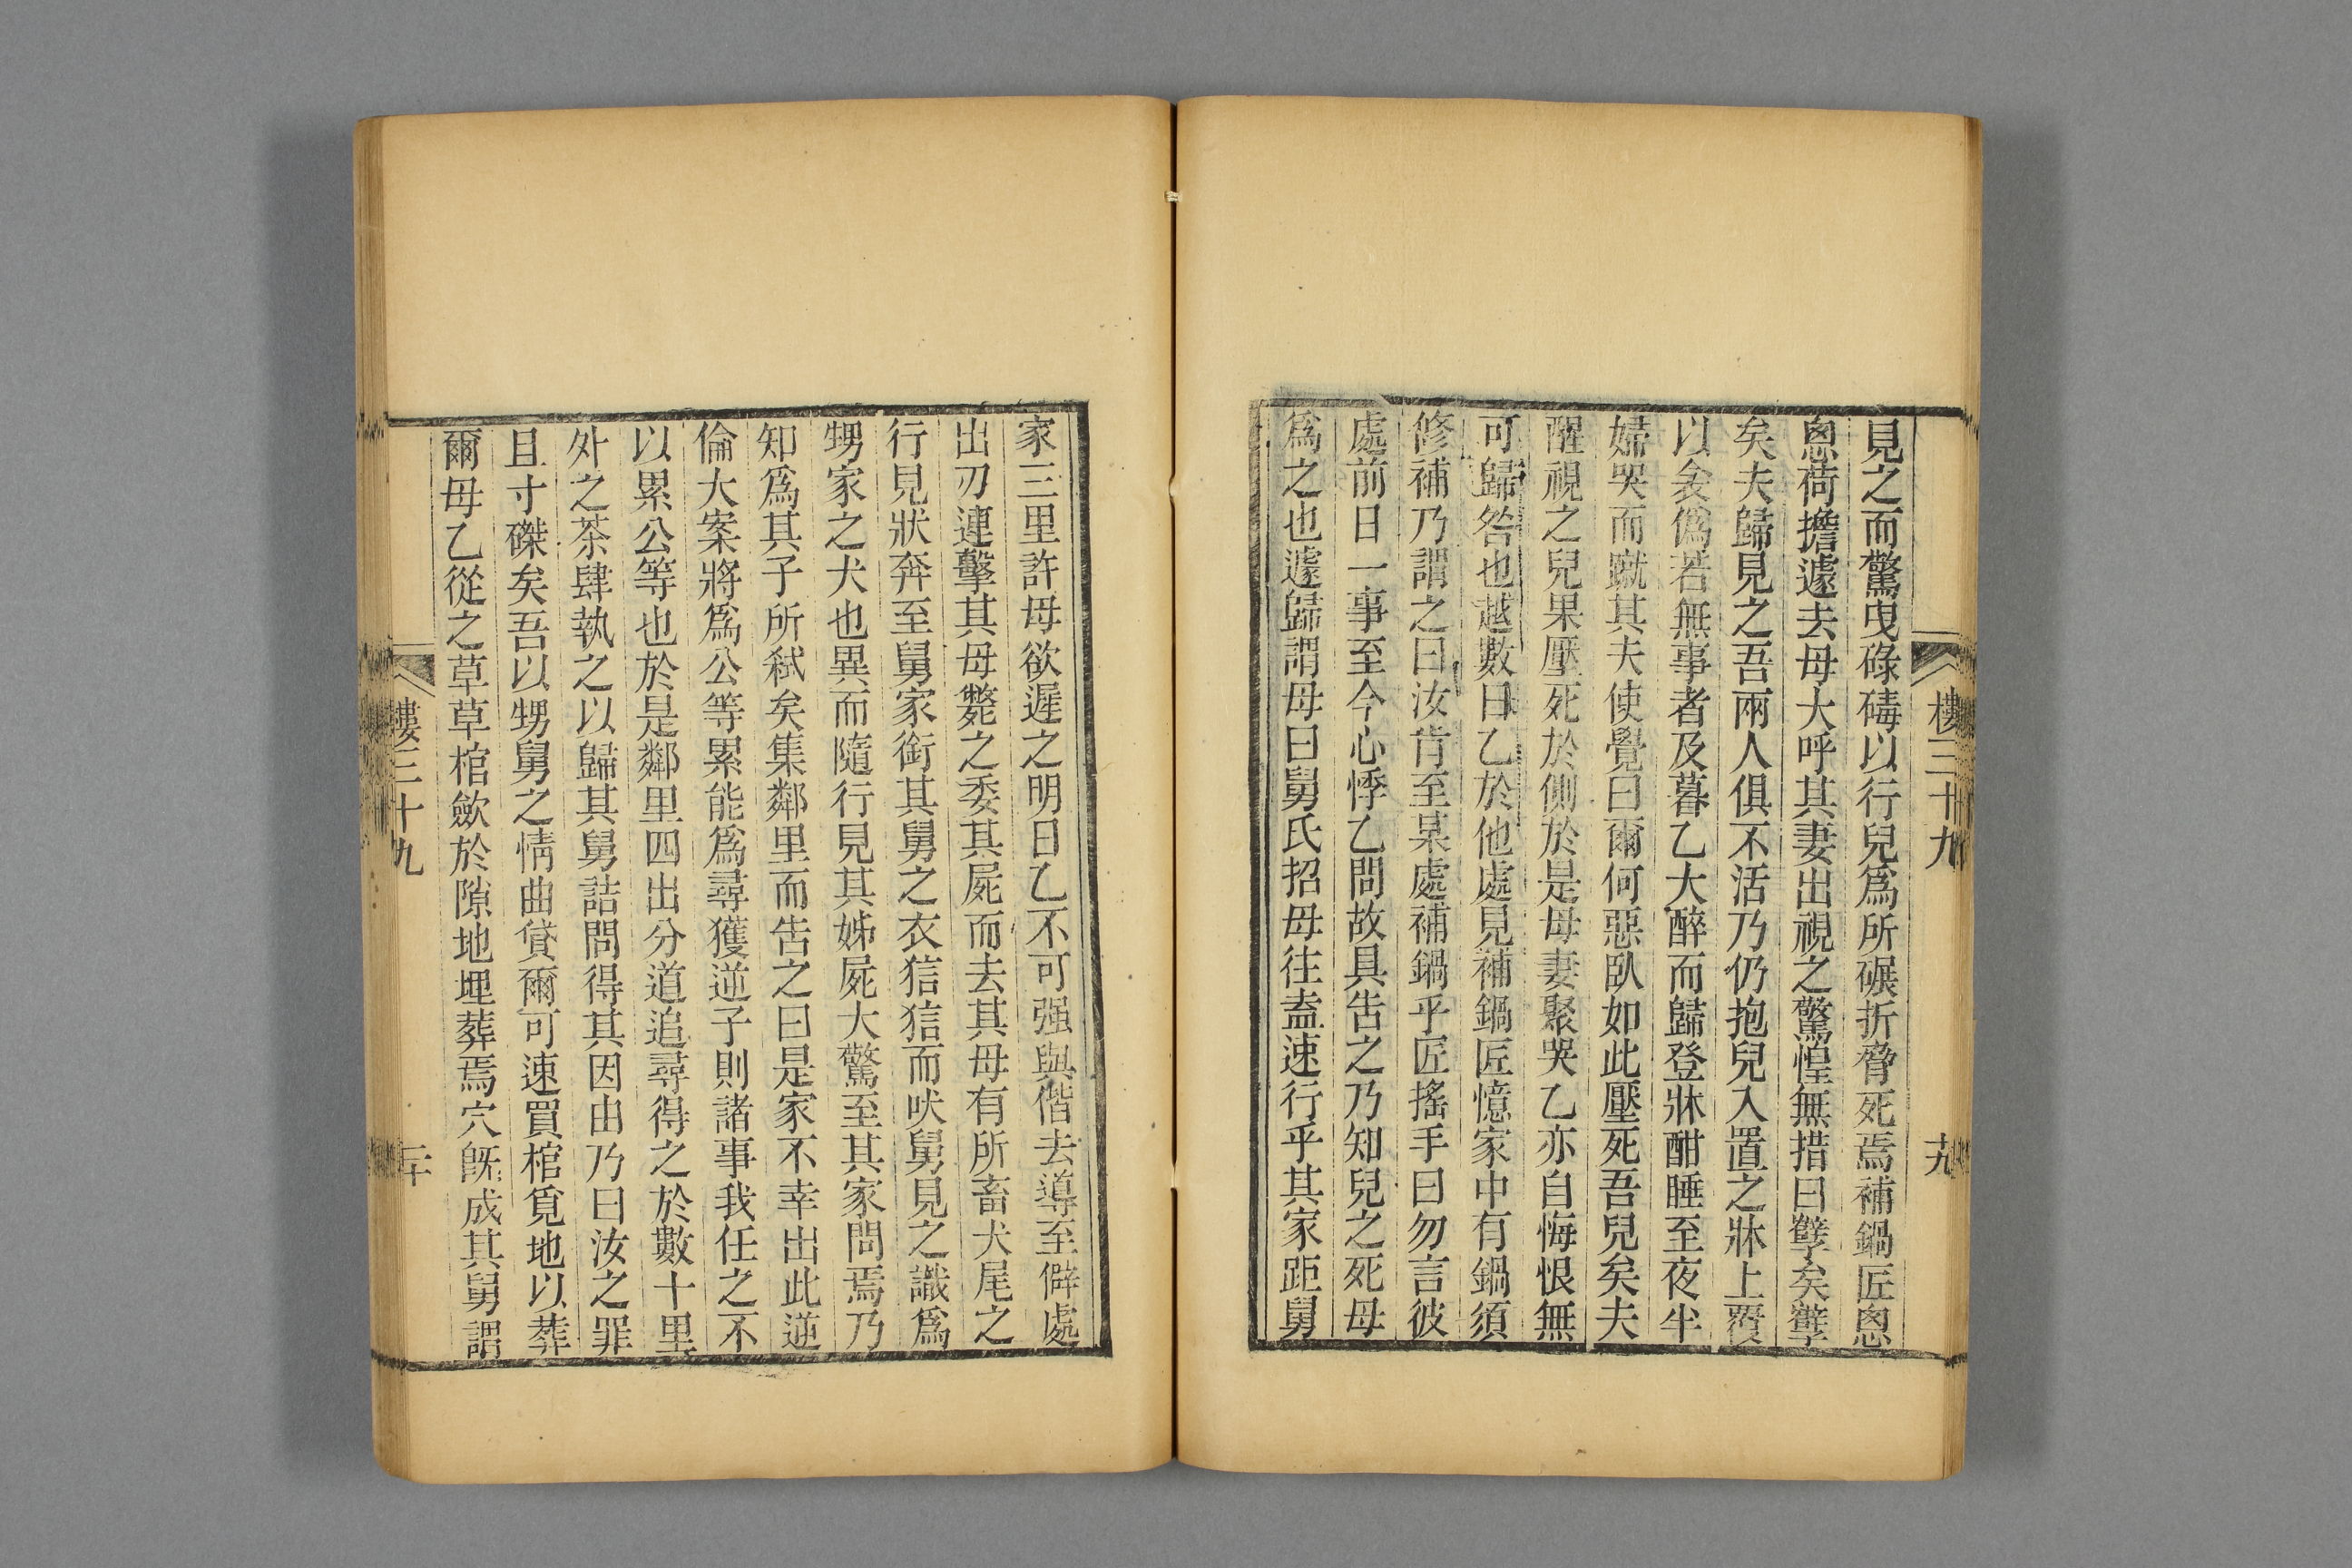 見之而驚曳碌碡以行兒爲所碾折脅死焉補鍋匠恖
恖荷擔遽去母大呼其妻出視之驚惶無措曰孽矣孽
矣夫歸見之吾兩人俱不活乃仍抱兒入置之牀上覆
以衾僞若無事者及暮乙大醉而歸登牀酣睡至夜半
婦哭而蹴其夫使覺曰爾何惡臥如此壓死吾兒矣夫
醒視之兒果壓死於側於是母妻聚哭乙亦自悔恨無
可歸咎也越數日乙於他處見補鍋匠憶家中有鍋須
修補乃謂之曰汝肯至某處補鍋乎匠搖手曰勿言彼
處前日一事至今心悸乙問故具告之乃知兒之死母
爲之也遽歸謂母曰舅氏招母往盍速行乎其家距舅
樓三十九
十九
家三里許母欲遲之明日乙不可强與偕去導至僻處
出刃連擊其母斃之委其屍而去其母有所畜犬尾之
行見狀奔至舅家銜其舅之衣狺狺而吠舅見之識爲
甥家之犬也異而隨行見其姊屍大驚至其家問焉乃
知爲其子所弒矣集鄰里而告之曰是家不幸出此逆
倫大案將爲公等累能爲尋獲逆子則諸事我任之不
以累公等也於是鄰里四出分道追尋得之於數十里
外之茶肆執之以歸其舅詰問得其因由乃曰汝之罪
且寸磔矣吾以甥舅之情曲貸爾可速買棺覓地以葬
爾母乙從之草草棺斂於隙地埋葬焉穴旣成其舅謂
樓三十九
二十